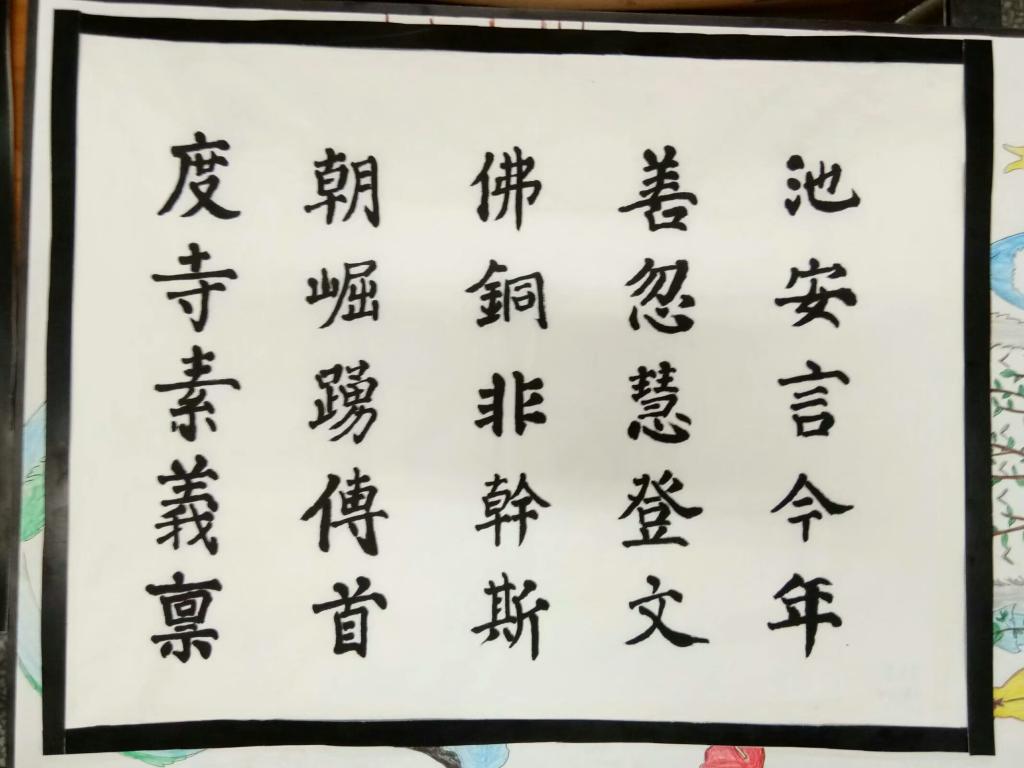 池安言今年
善忽慧登文
佛銅非幹斯
朝崛踴傳首
度寺素義禀